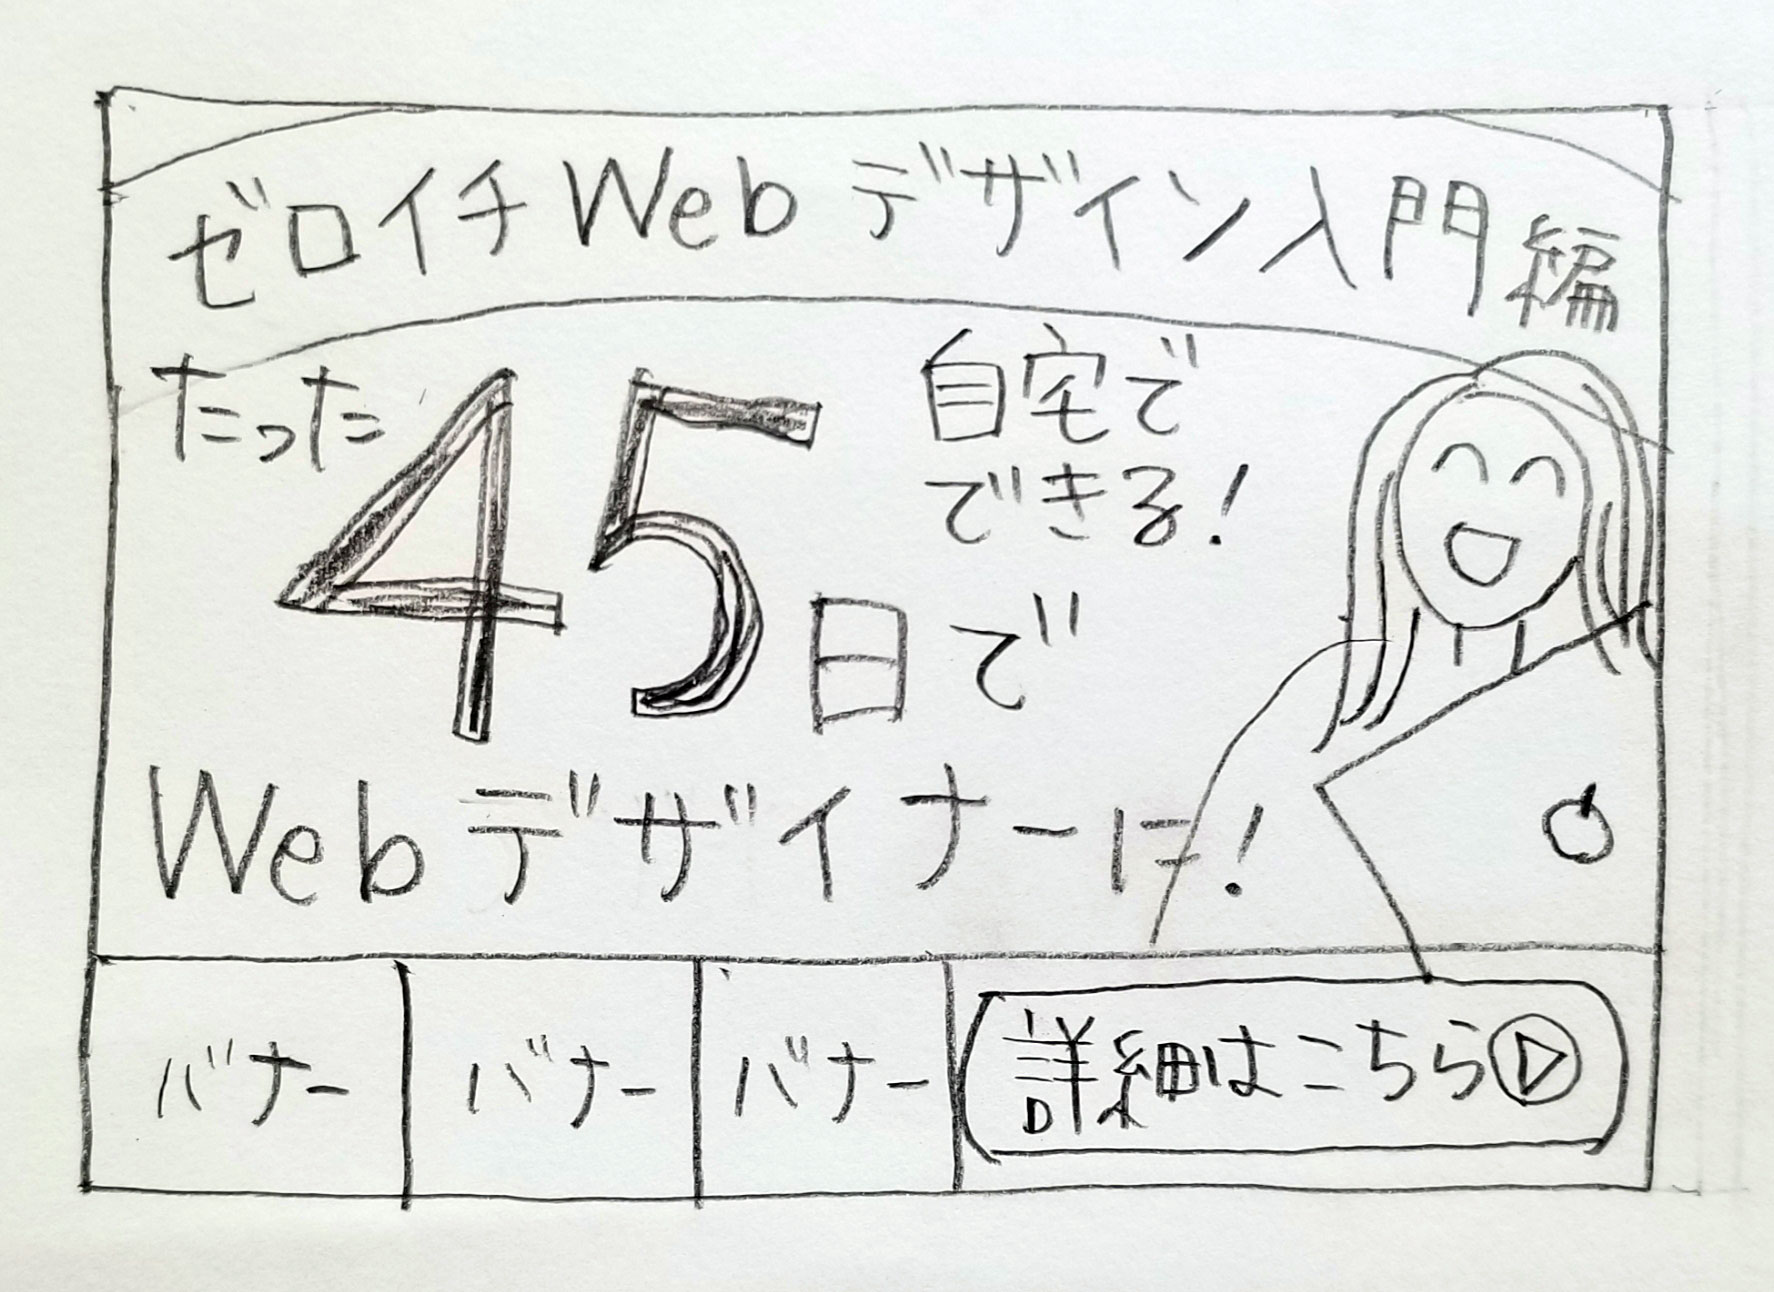 ゼロイチWebデザイン入門編
たった
45日で
自宅で
できる!
Webデザイナーに!
バナー
バナー
バナー
詳細はこちら